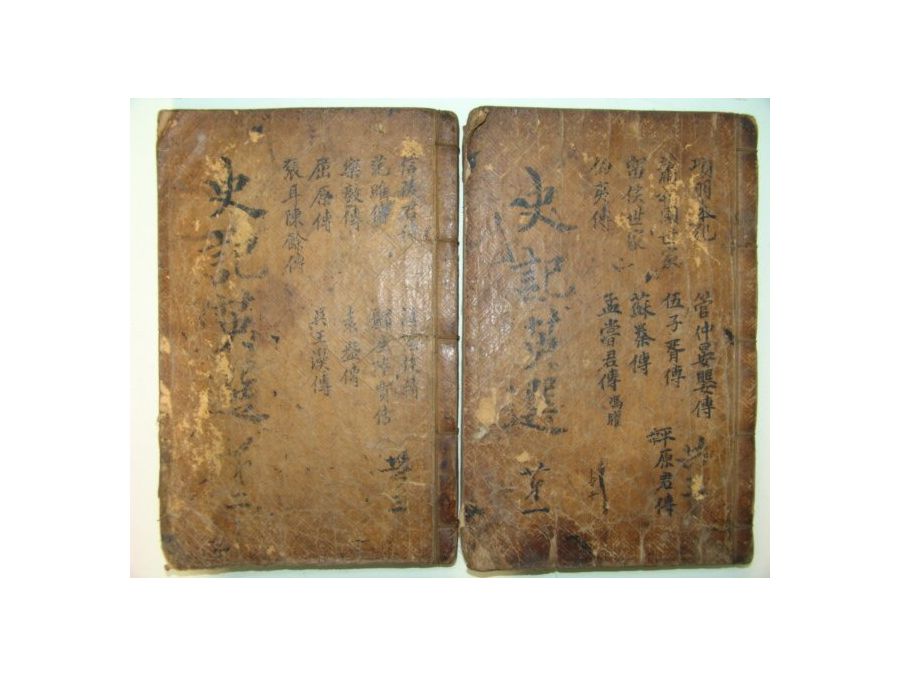 項羽本紀
蕭相國世家
留侯世家
伯夷傳
管仲晏嬰傳
伍子胥傳
蘇秦傳
孟嘗君傳 馮驩
平原君傳
史記英選
苐一
信陵君傳
范雎傳
樂毅傳
屈原傳
張耳陳餘傳
淮陰侯傳
酈生陸賈傳
袁盎傳
吳王濞傳
共三
史記英選
苐二